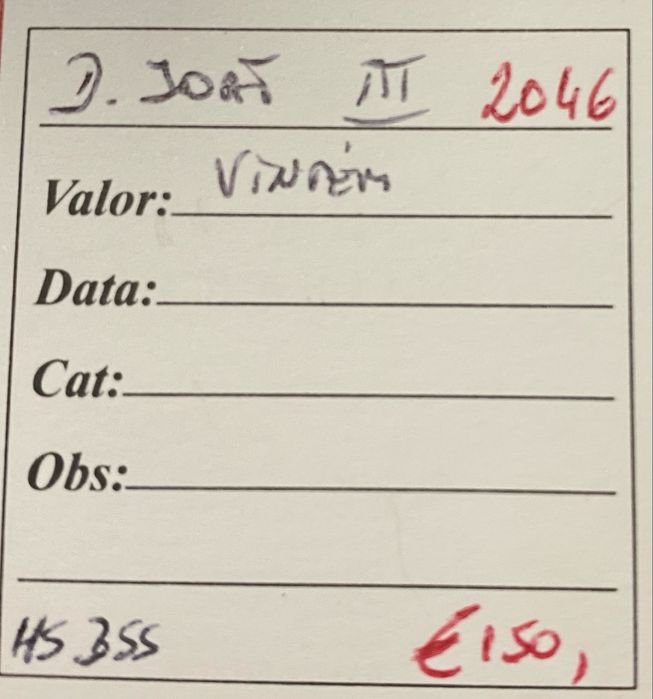 D. João III 2046
Valor: Vintém
Data:
Cat:
Obs:
HS 355
€150,